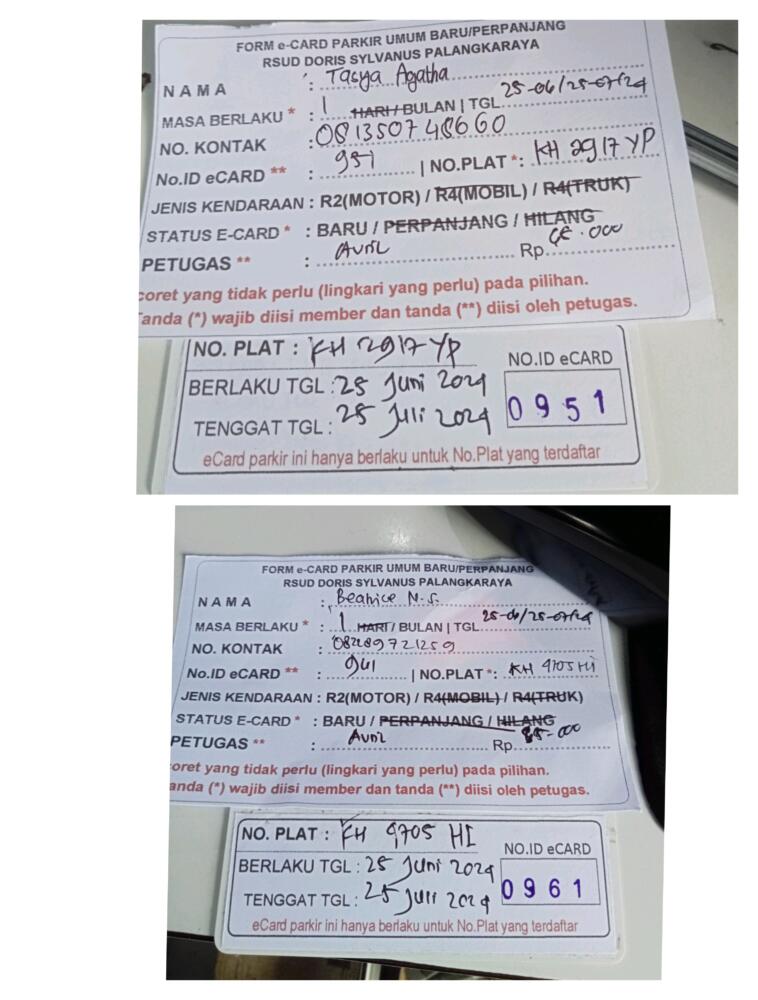 FORM e-CARD PARKIR UMUM BARU/PERPANJANG
RSUD DORIS SYLVANUS PALANGKARAYA
NAMA : Tasya Agatha
MASA BERLAKU * : 1 HARI / BULAN | TGL 25-06/25-07/24
NO. KONTAK : 081350748660
No.ID eCARD ** : 951 | NO.PLAT *: KH 2917 YP
JENIS KENDARAAN : R2(MOTOR) / R4(MOBIL) / R4(TRUK)
STATUS E-CARD * : BARU / PERPANJANG / HILANG
PETUGAS ** : Avril Rp. .000
coret yang tidak perlu (lingkari yang perlu) pada pilihan.
Tanda (*) wajib diisi member dan tanda (**) diisi oleh petugas.
NO. PLAT : KH 2917 YP
NO.ID eCARD
BERLAKU TGL : 25 Juni 2024
0951
TENGGAT TGL : 25 Juli 2024
eCard parkir ini hanya berlaku untuk No.Plat yang terdaftar
FORM e-CARD PARKIR UMUM BARU/PERPANJANG
RSUD DORIS SYLVANUS PALANGKARAYA
NAMA : Beatrice N.S.
MASA BERLAKU * : 1 HARI / BULAN | TGL 25-06/25-07/24
NO. KONTAK :
No.ID eCARD ** : 961 | NO.PLAT *: KH 9705 HI
JENIS KENDARAAN : R2(MOTOR) / R4(MOBIL) / R4(TRUK)
STATUS E-CARD * : BARU / PERPANJANG / HILANG
PETUGAS ** : Avril Rp. -000
oret yang tidak perlu (lingkari yang perlu) pada pilihan.
anda (*) wajib diisi member dan tanda (**) diisi oleh petugas.
NO. PLAT : KH 9705 HI
NO.ID eCARD
BERLAKU TGL : 25 Juni 2024
0961
TENGGAT TGL : 25 Juli 2024
eCard parkir ini hanya berlaku untuk No.Plat yang terdaftar